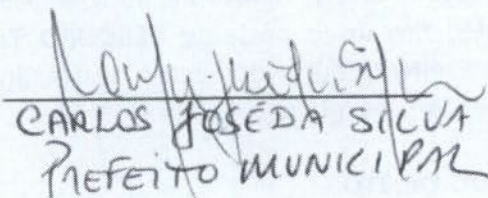 CARLOS JOSÉ DA SILVA
PREFEITO MUNICIPAL